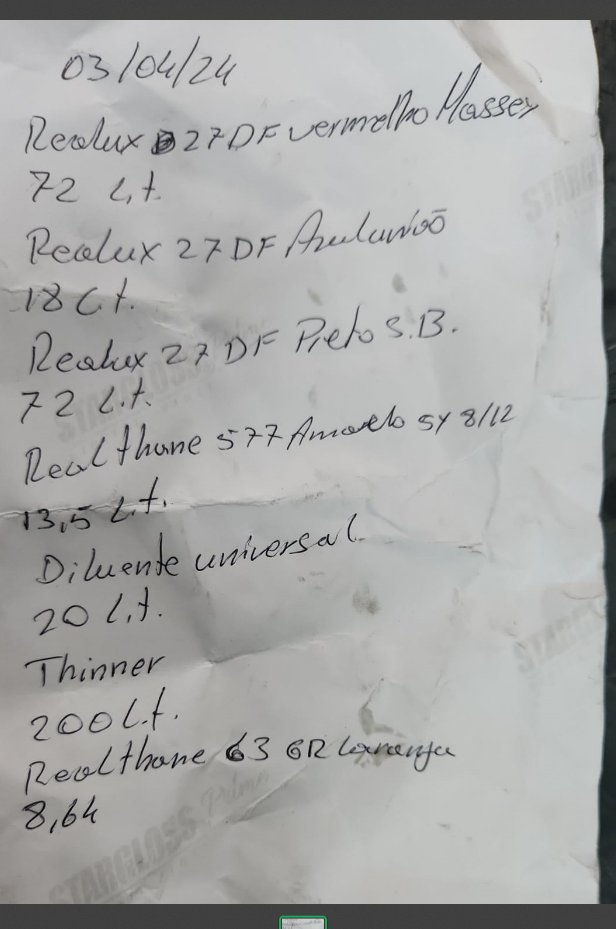 03/04/24
Realux 27DF vermelho Massey
72 L.t.
Realux 27 DF
18 L.t.
Realux 27 DF Preto S.B.
72 L.t.
Realthane 577 Amarelo 5Y 8/12
13,5 L.t.
Diluente universal
20 L.t.
Thinner
200 L.t.
Realthane 63 GR laranja
8,64
STARGLOSS
STARGLOSS
STARGLOSS Primer